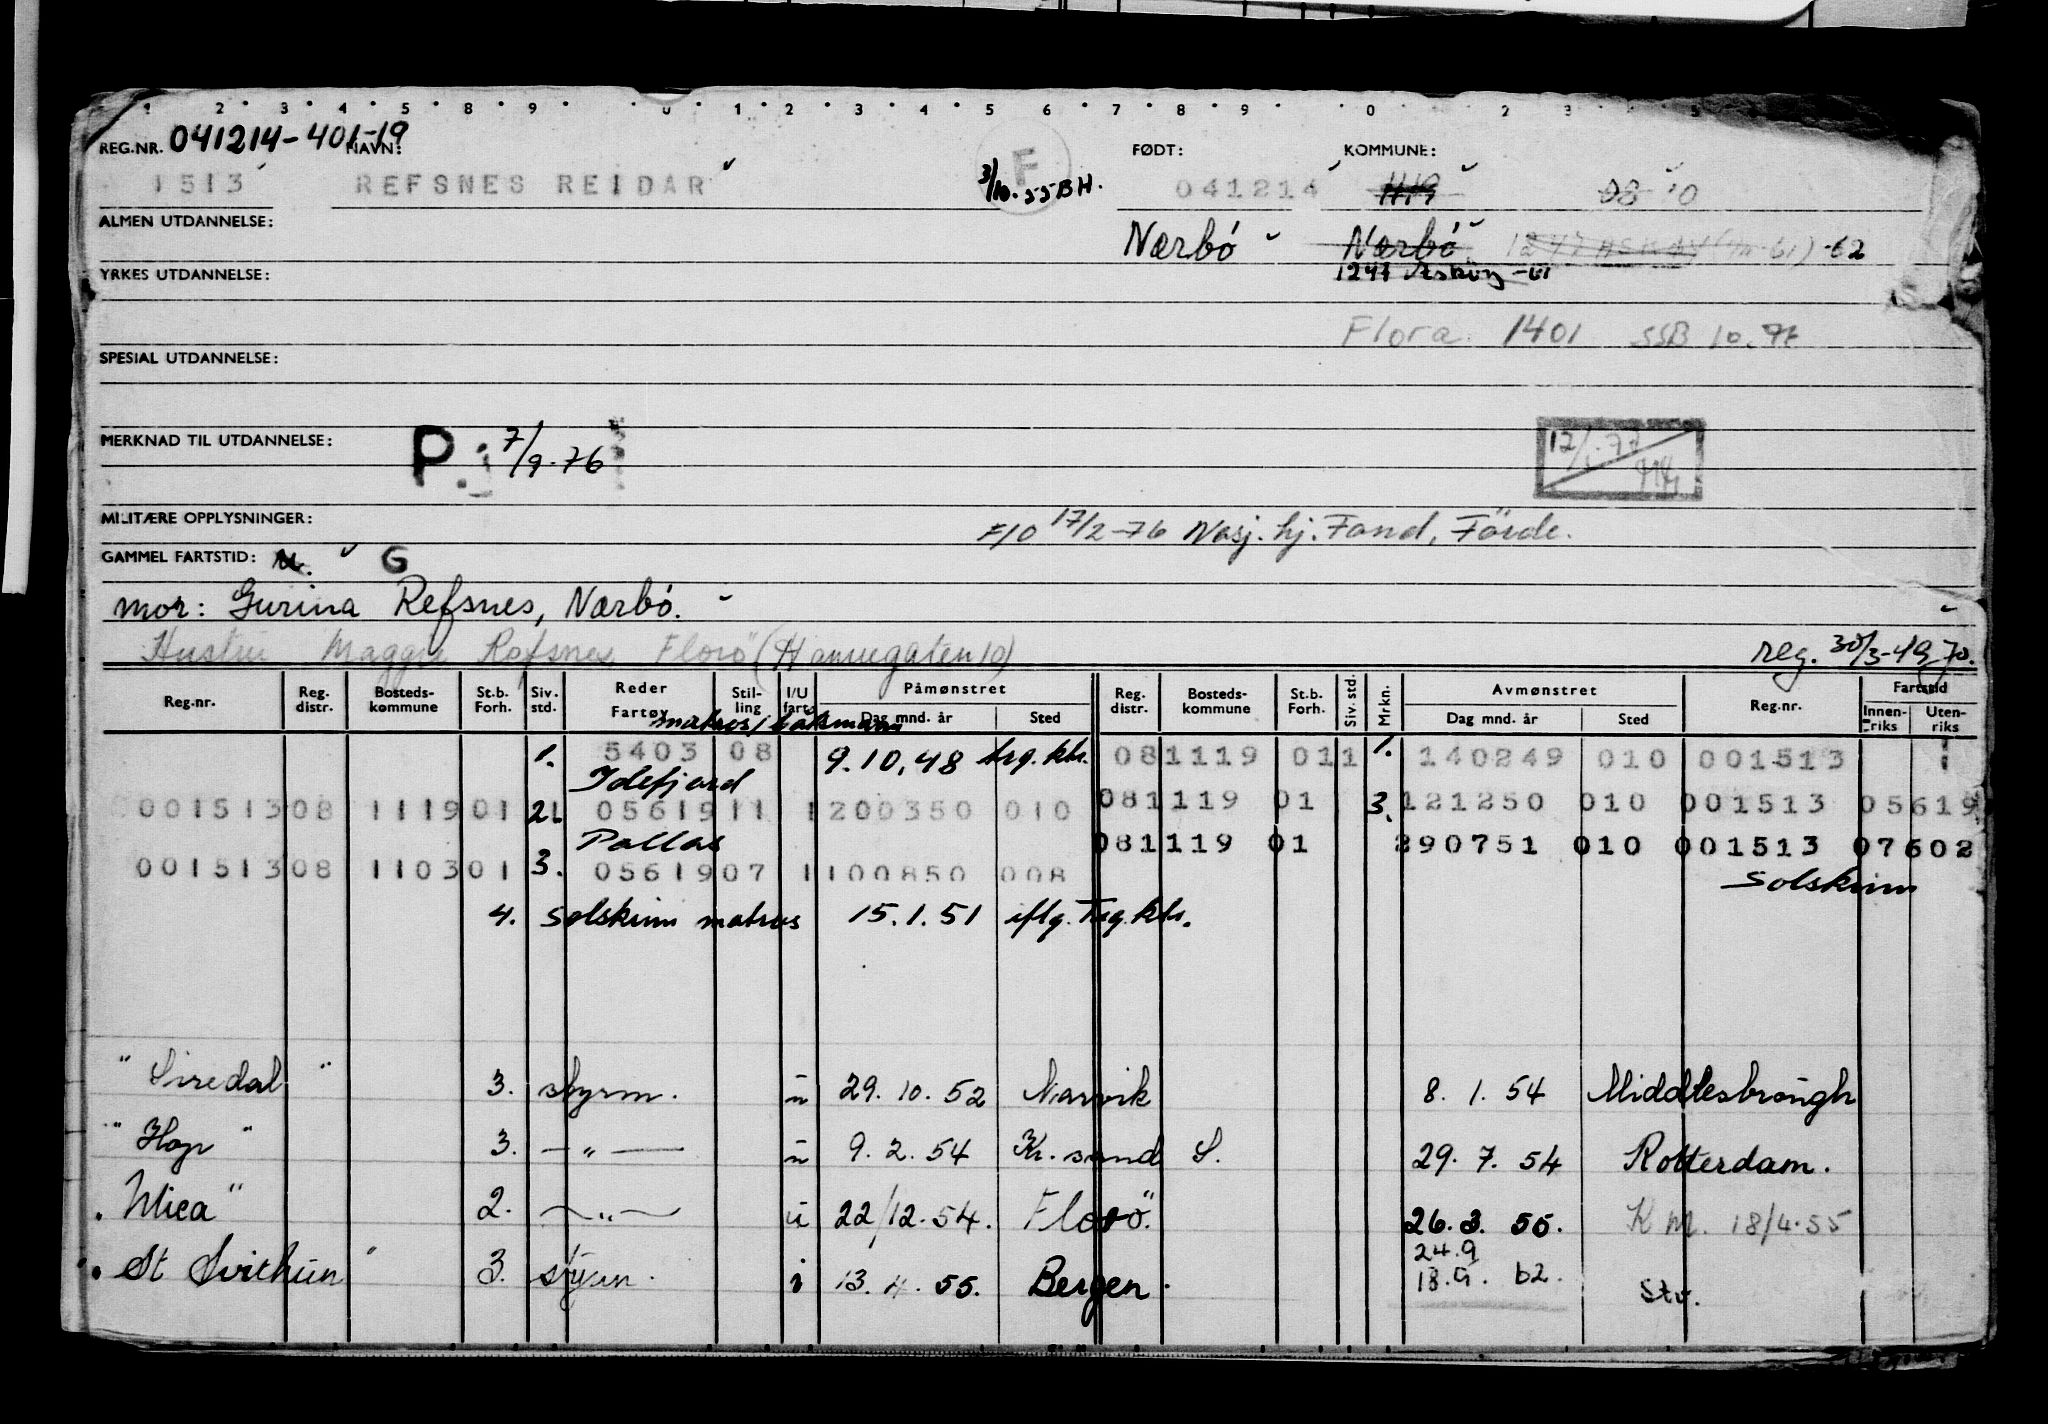 1 2 3 4 5 8 9 0 1 2 3 4 5 6 7 8 9 0 2 3
REG.NR. 041214-401-19 NAVN: FØDT: KOMMUNE:
1513 REFSNES REIDAR F 3/10.55 BH. 041214 1119
ALMEN UTDANNELSE: Nærbö Nærbö 1247 -62
YRKES UTDANNELSE: 1247 Asköy -61
Flora 1401 SSB 10.76
SPESIAL UTDANNELSE:
MERKNAD TIL UTDANNELSE: P. 7/9-76
MILITÆRE OPPLYSNINGER: F/O 17/2-76 Nasj. hj. Fond, Förde.
GAMMEL FARTSTID: G
mor: Gurina Refsnes, Nærbö.
Hustru Maggie Refsnes Florö (Hamnegaten 10) reg. 30/3-1970.
Reg.nr. Reg. distr. Bosteds- kommune St.b. Forh. Siv. std. Reder Fartøy Stil- ling I/U farts Påmønstret Dag mnd. år Sted Reg. distr. Bosteds- kommune St.b. Forh. Siv. std. Mrkn. Avmønstret Dag mnd. år Sted Reg.nr. Fartstid Innen- riks Uten- riks
matros/båtsmann
1. 5403 08 9.10.48 trg.ktr. 081119 011 1. 140249 010 001513
Idefjord
001513 08 1119 01 2. 05619 11 1 200350 010 081119 01 3. 121250 010 001513 05619
Pallas 081119 01 290751 010 001513 07602
001513 08 1103 01 3. 05619 07 1 100850 008 Solskinn
4. Solskinn matros 15.1.51 iflg. Trg.ktr.
"Siredal" 3. styrm. u 29.10.52 Narvik 8.1.54 Middlesbrough
"Hop" 3. —"— u 9.2.54 Kr.sand S. 29.7.54 Rotterdam.
"Mica" 2. —"— u 22/12.54. Florö. 26.3.55. K M. 18/4.55
24.9
St Svithun" 3. styrm. i 13.4.55. Bergen. 62. Stv.